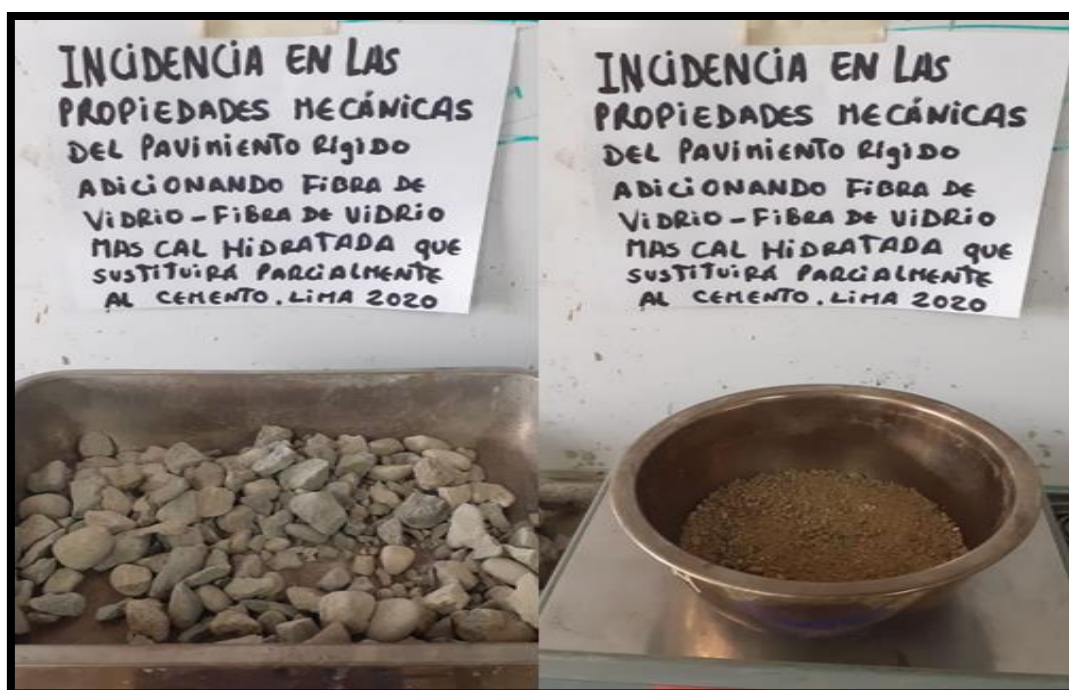 INCIDENCIA EN LAS
PROPIEDADES MECÁNICAS
DEL PAVIMIENTO RÍGIDO
ADICIONANDO FIBRA DE
VIDRIO - FIBRA DE VIDRIO
MAS CAL HIDRATADA QUE
SUSTITUIRÁ PARCIALMENTE
AL CEMENTO. LIMA 2020
INCIDENCIA EN LAS
PROPIEDADES MECÁNICAS
DEL PAVIMIENTO RÍGIDO
ADICIONANDO FIBRA DE
VIDRIO - FIBRA DE VIDRIO
MAS CAL HIDRATADA QUE
SUSTITUIRÁ PARCIALMENTE
AL CEMENTO. LIMA 2020